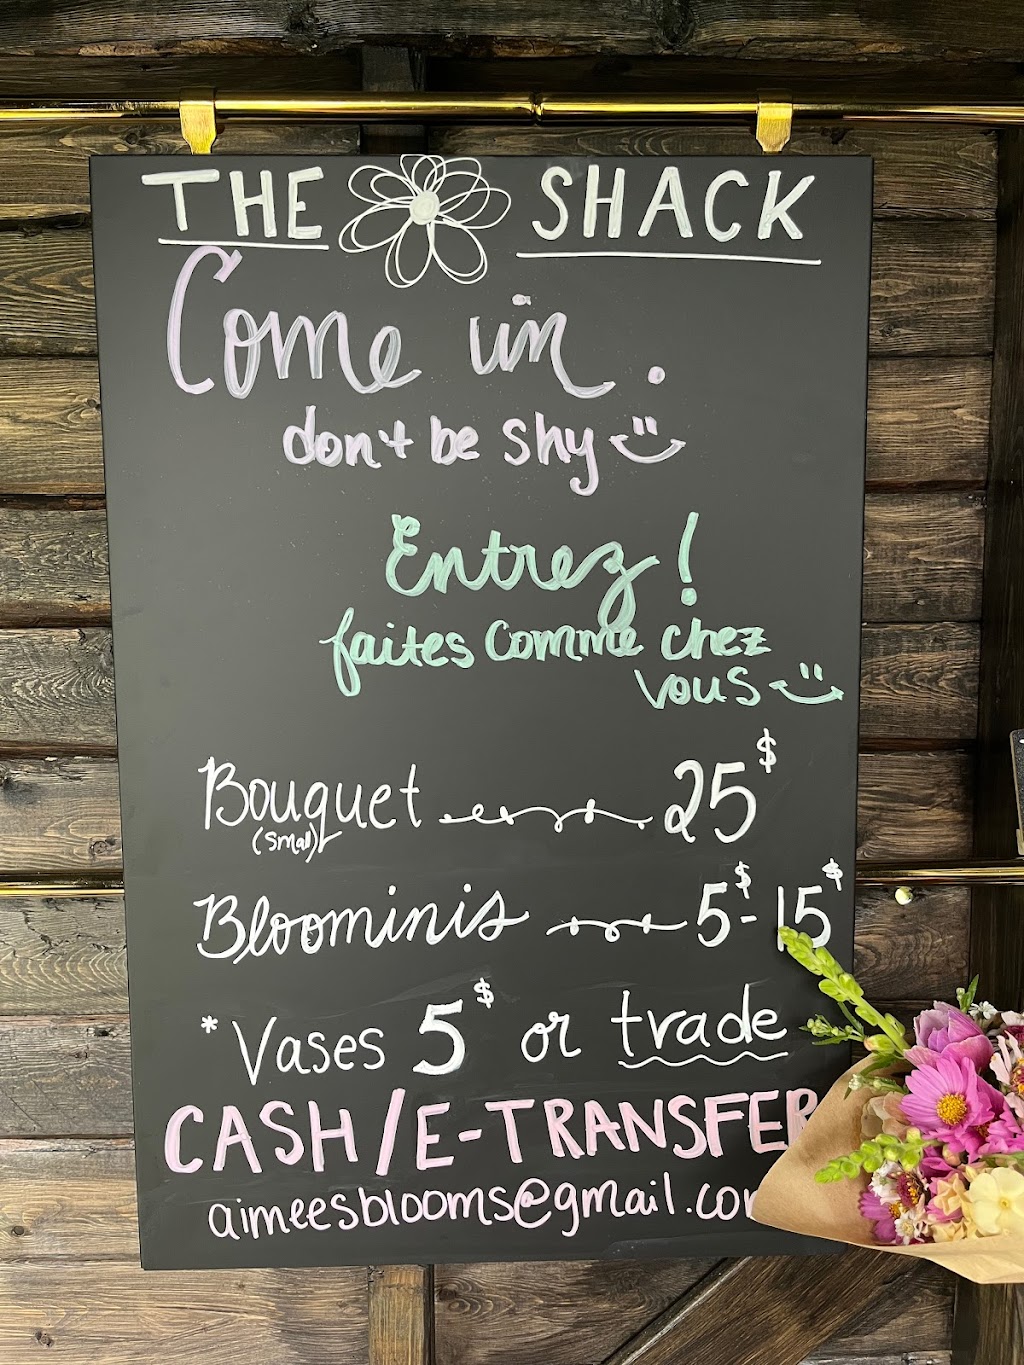 THE SHACK
Come in.
don't be shy
Entrez!
faites comme chez
vous
Bouquet 25$
(small)
Bloominis 5$-15$
*Vases 5$ or trade
CASH/E-TRANSFER
aimeesblooms@gmail.com